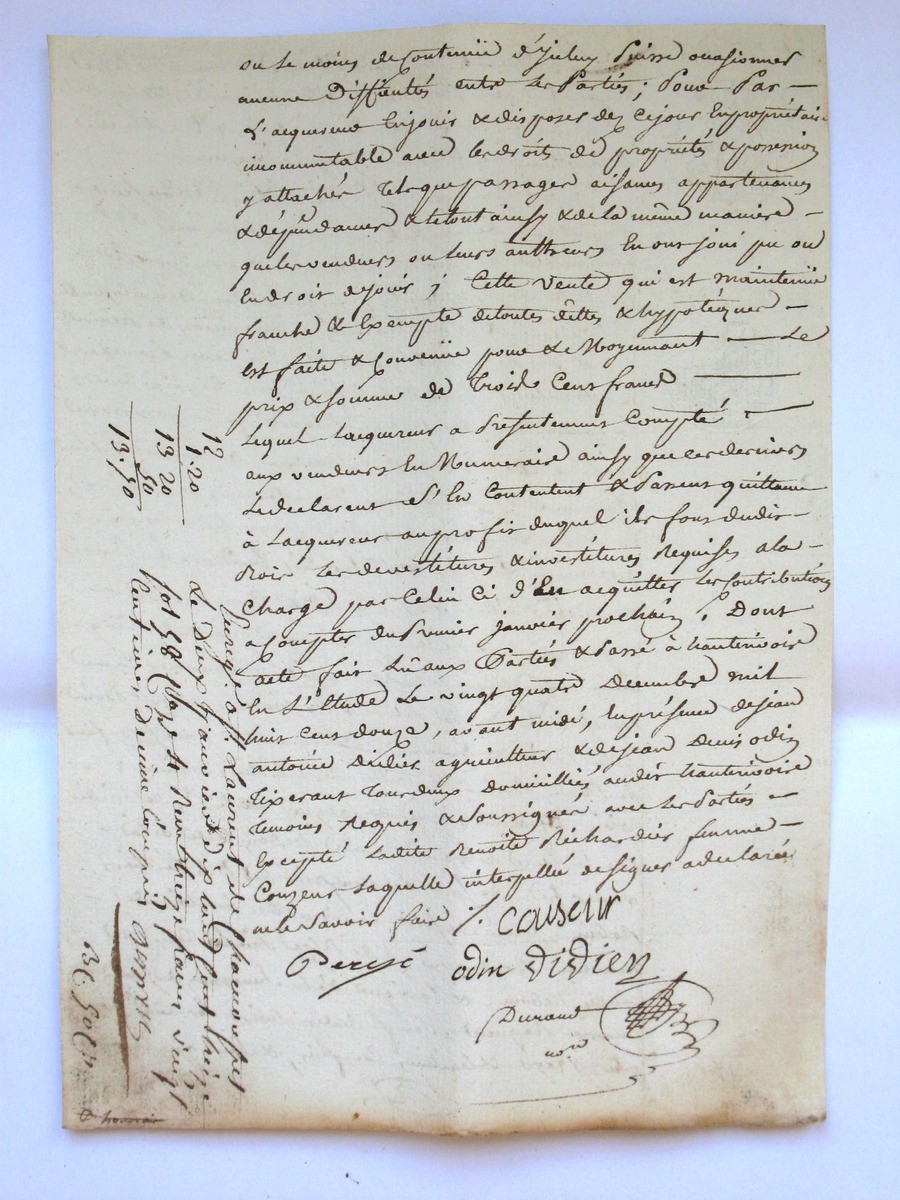 ou le moins de Contenüe d'Iceluy Puisse ocasionner
aucune Difficultés entre les Parties; Pour Par —
L'acquereur En jouir & disposer des ce jour En propriétaire
incommutable avec les droits de propriétés & possession
y attachés tels que passages aisances appartenances
& dépendances & le tout ainsy & de la même manière —
que les vendeurs ou leurs autheurs En ont joui pu ou
En droit de jouir; Cette vente qui est maintenüe
franche & Exempte de toutes dettes & hypotèques —
est faite & Convenüe pour & Moyennant — Le
prix & somme de Trois Cent francs —
Lequel Lacquereur a Présentement Compté —
aux vendeurs En Numeraire ainsy que ces derniers
Le déclarent s'En Contentent & Passent quittance
à Lacquereur au profit duquel ils font dudit —
les devestitures & investitures Requises a la —
Charge par Celui Ci d'En acquitter les Contributions
a Compter du Premier janvier prochain. Dont
acte fait Lû aux Parties & Passé à hauterivoire
En L'Etude Le vingt quatre Decembre mil
huit Cent douze, avant midi, En présence de jean
antoine Didier agriculteur & de jean Denis odin
Tixerant Tous deux domicilliés audit hauterivoire
Temoins Requis & Soussignés avec les Parties —
Excepté Ladite Benoite Réchardier femme —
Couzeur Laquelle interpellée de signer a declaré
ne le Savoir faire ./.
couseur
odin Didien
Durand
nore
12
1.20
13 20
50
13.50
Enregé à St Laurent de Chamousset
Le Deux janvier 1813
fol 58
centimes